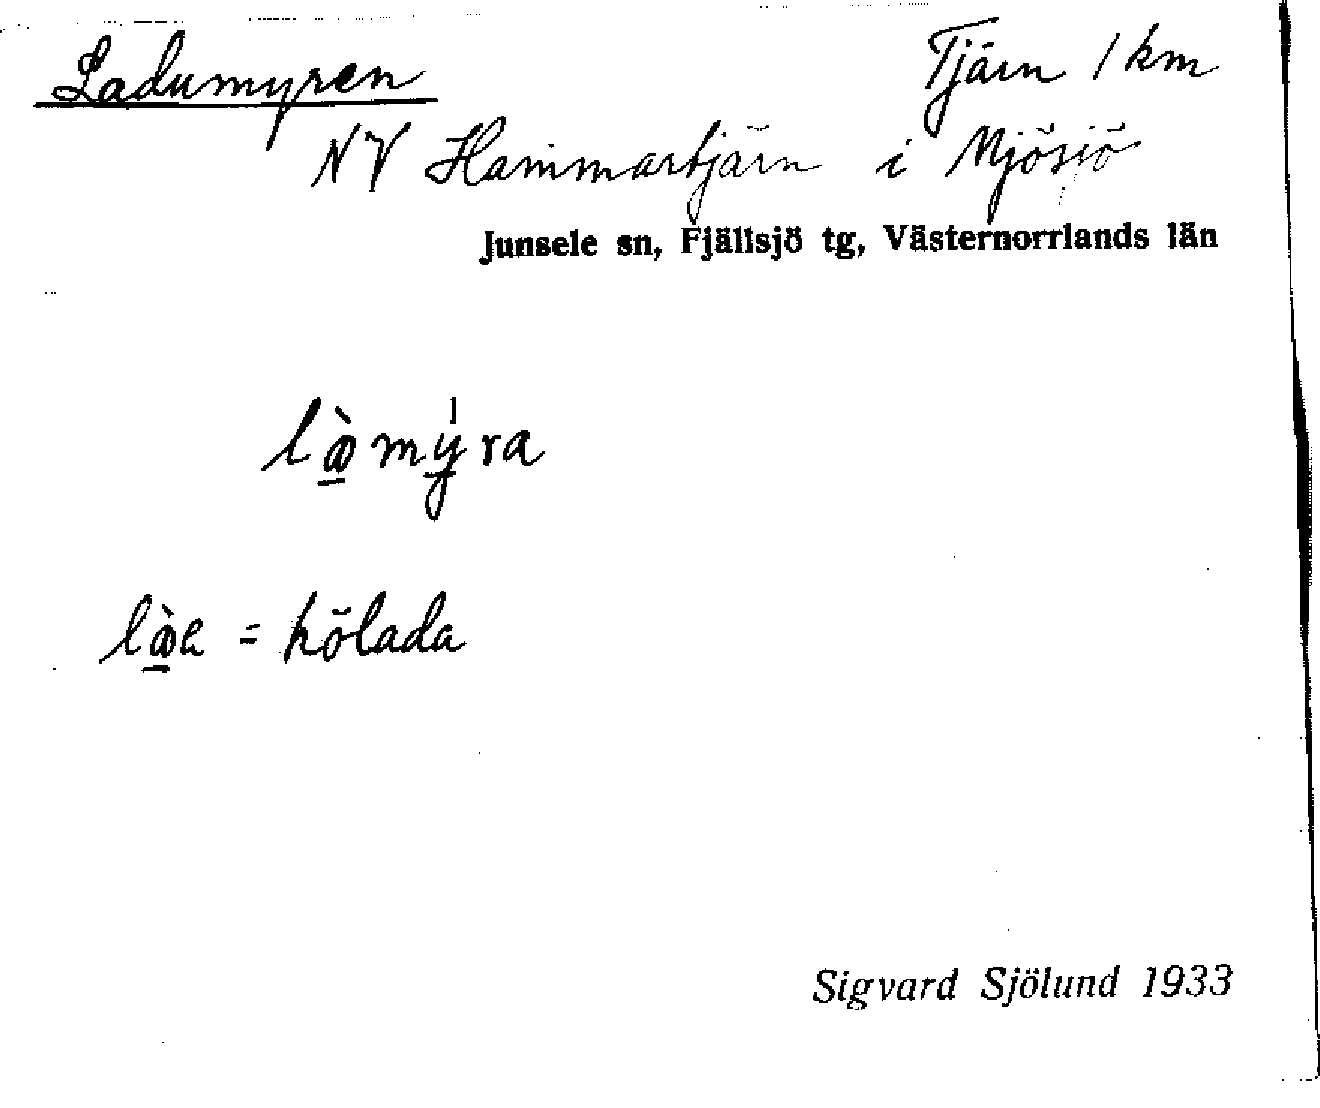 Ladumyren Tjärn 1 km
NV Hammartjärn i Mjösjö
Junsele sn, Fjällsjö tg, Västernorrlands län
= hölada
Sigvard Sjölund 1933